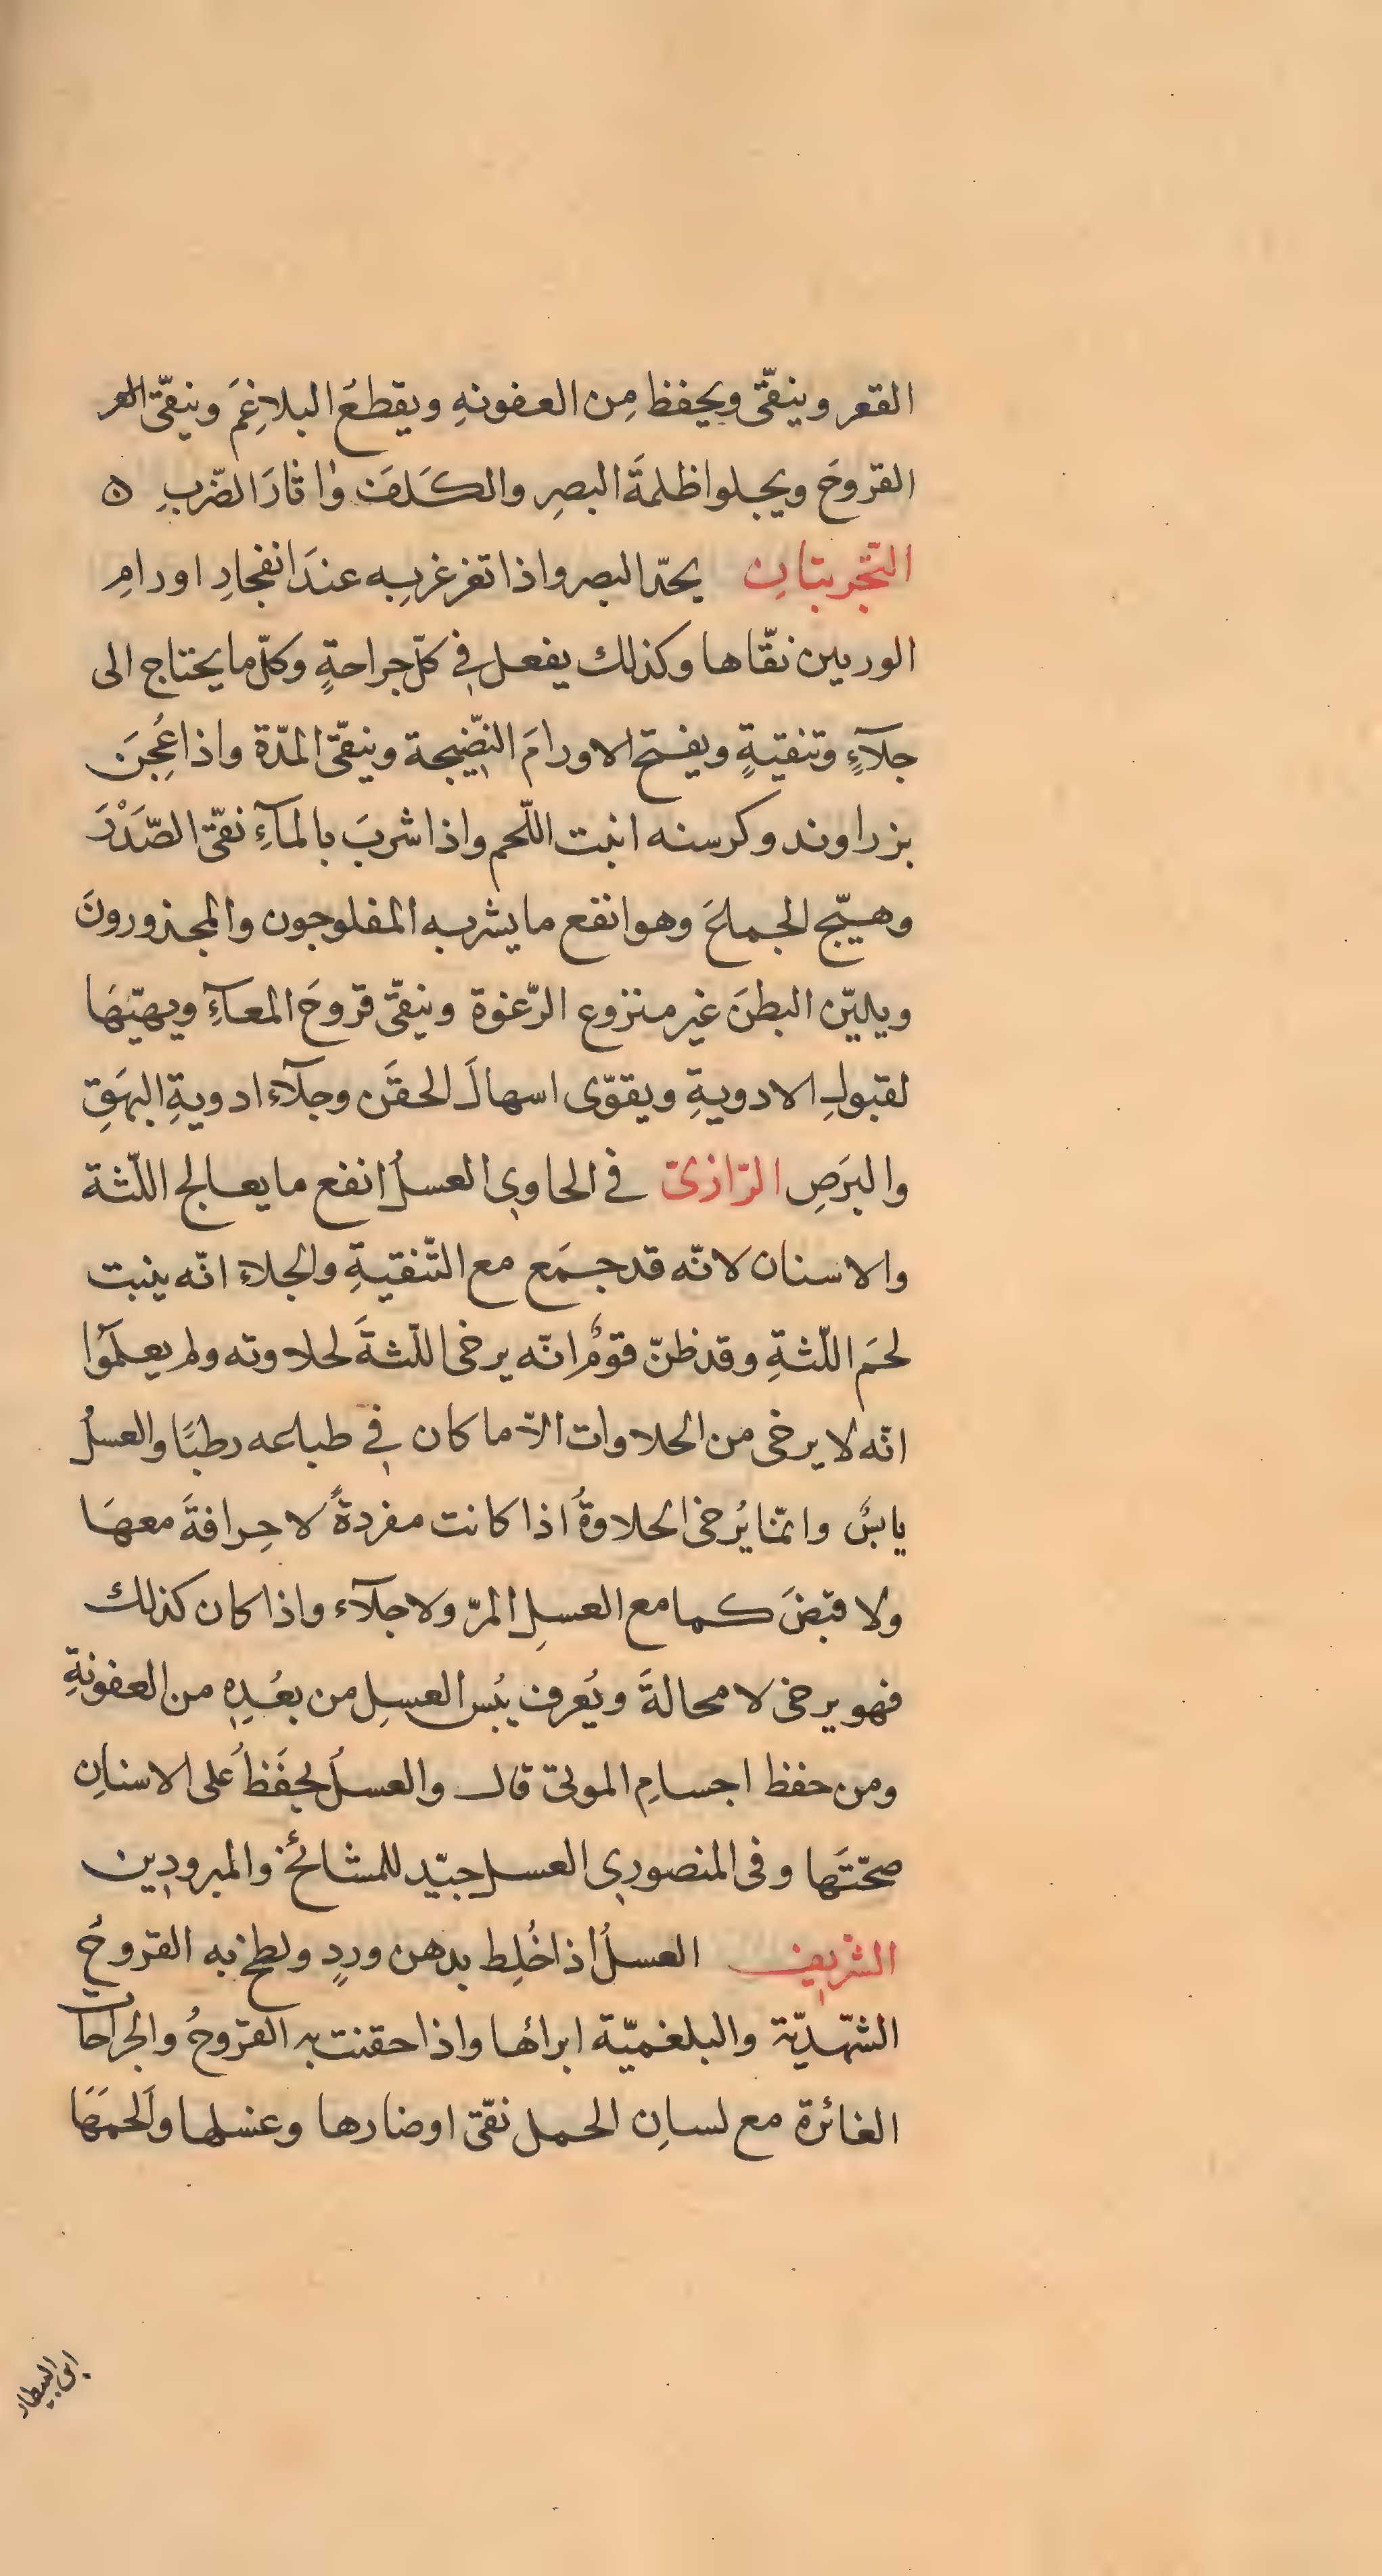 القعر وينقّى ويحفظ مِن العفونهِ ويقطعُ البلاغِمَ وينقّى القعر
القروحَ ويجلوا ظلمةَ البصرِ والكَلَفَ واثارَ الضّربِ ه
التّجربتانِ يحدّ البصر واذا تغرغر بِه عندَ انفجارِ اورامِ
الوريين نقّاها وكذلك يفعل فى كلّ جراحةٍ وكلّ ما يحتاج الى
جلآءٍ وتنقيةٍ ويفتح الاورامَ النّضيجة وينقّى المدّة واذا عُجِنَ
بزراوند وكرسنه انبت اللّحم واذا شربَ بالمآءِ نقّى الصّدْرَ
وهيّج الجماعَ وهو انفع ما يشربه المفلوجون والمجذورونَ
ويليّن البطنَ غير منزوع الرّغوة وينقّى قروحَ المعآءِ ويهيّهَا
لقبولِ الادويةِ ويقوّى اسهالَ الحقَن وجلآء ادويةِ البهَقِ
والبرَصِ الرّازىّ فى الحاوى العسلُ انفع ما يعالج اللّثة
والاسنان لانّه قد جمَع مع التّنقيةِ والجلاء انّه ينبت
لحمَ اللّثةِ وقد ظنّ قومٌ انّه يرخى اللّثةَ لحلاوته ولم يعلمُوا
انّه لا يرخى من الحلاوات الاّ ما كان فى طباعه رطبًا والعسلُ
يابسٌ وانّما يُرخى الحلاوةُ اذا كانت مفردةً لا حِرافةَ معهَا
ولا قبضَ كما مع العسلِ المرّ ولا جلآء واذا كان كذلك
فهو يرخى لا محالةَ ويُعرف يُبس العسلِ من بعُدِهِ من العفونةِ
ومن حفظ اجسامِ الموتى قال والعسلُ يحفَظُ على الاسنانِ
صحّتَها وفى المنصورى العسل جيّد للمشائخ والمبرودين
الشريف العسلُ اذا خُلِط بدهن وردٍ ولطخ به القروحُ
الشّهديّة والبلغميّة ابرائها واذا حقنت به القروحُ والجراحات
الغائرة مع لسانِ الحمل نقّى اوضارها وغسلها والحمَهَا
ابن البيطار